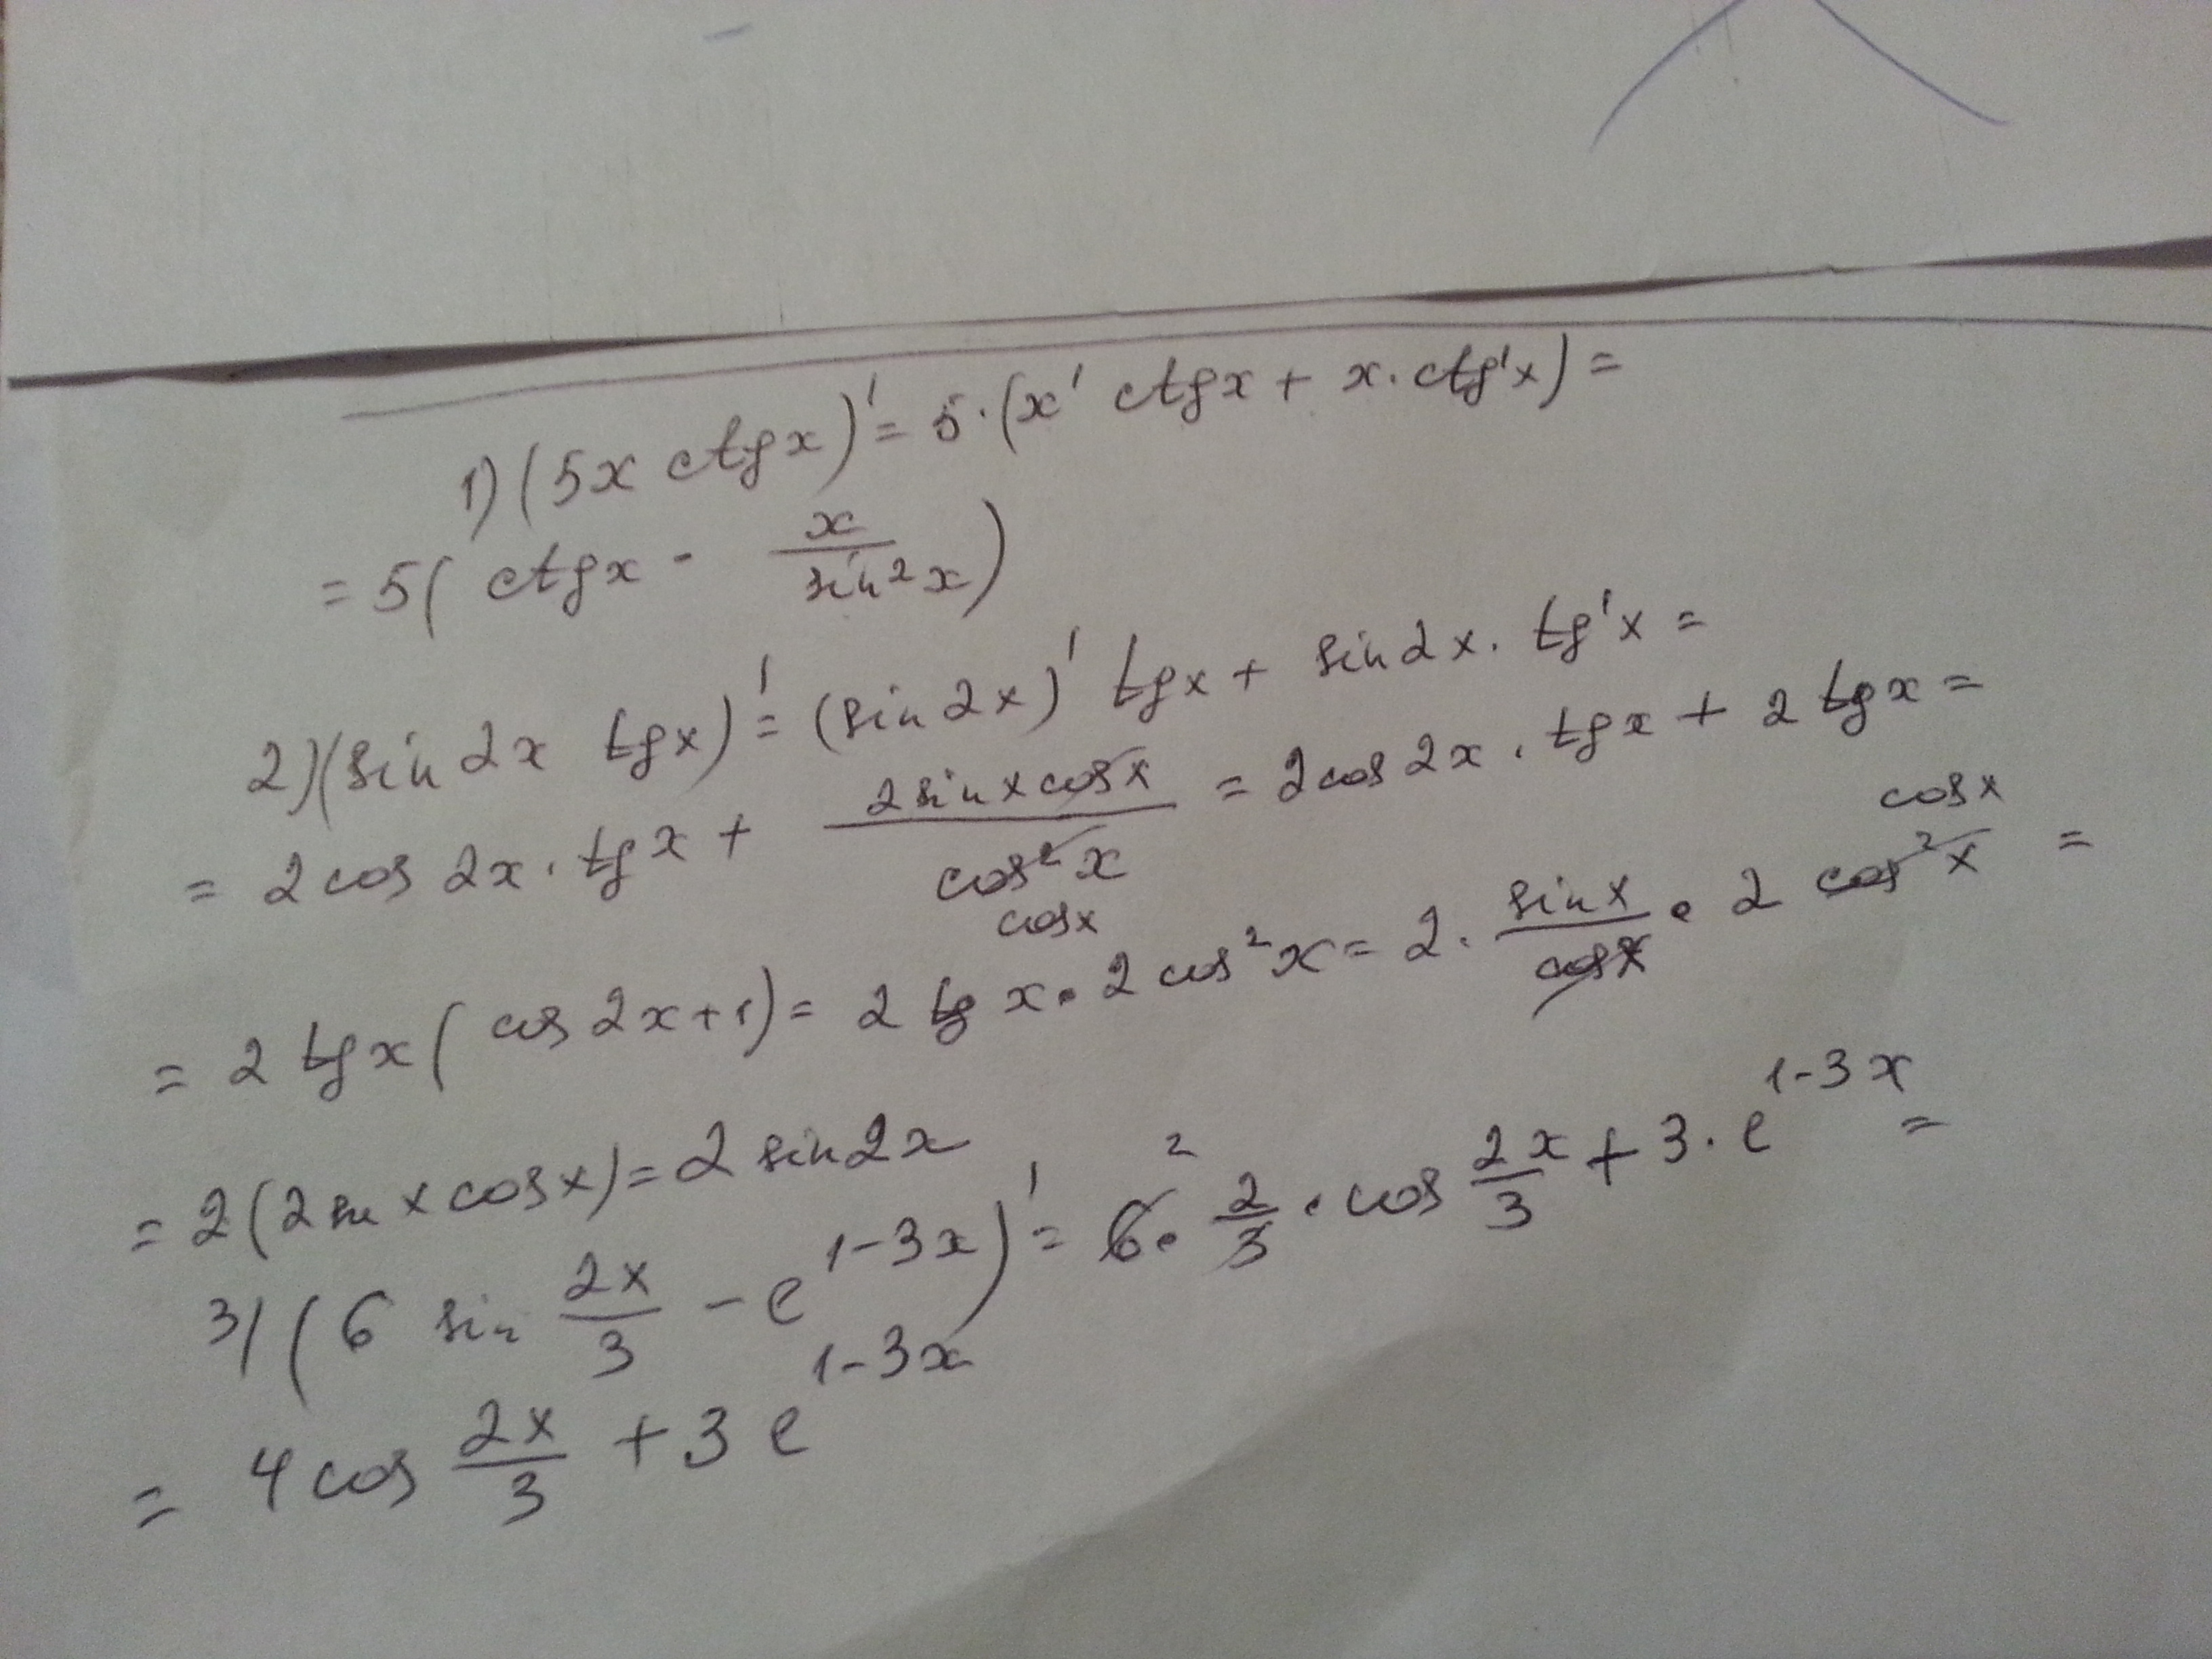 1) (5x ctgx)' = 5·(x' ctgx + x·ctg'x) =
= 5(ctgx - x/sin²x)
2) (sin 2x tgx)' = (sin 2x)' tgx + sin2x · tg'x =
= 2cos 2x · tgx + 2sinxcosx/cos²x cosx = 2cos2x · tgx + 2tgx =
= 2tgx(cos2x+1) = 2tgx · 2cos²x = 2 · sinx/cosx · 2cos²x cosx =
= 2(2sinxcosx) = 2sin2x
3) (6 sin 2x/3 - e^(1-3x))' = 6 2 · 2/3 · cos 2x/3 + 3·e^(1-3x) =
= 4cos 2x/3 + 3e^(1-3x)